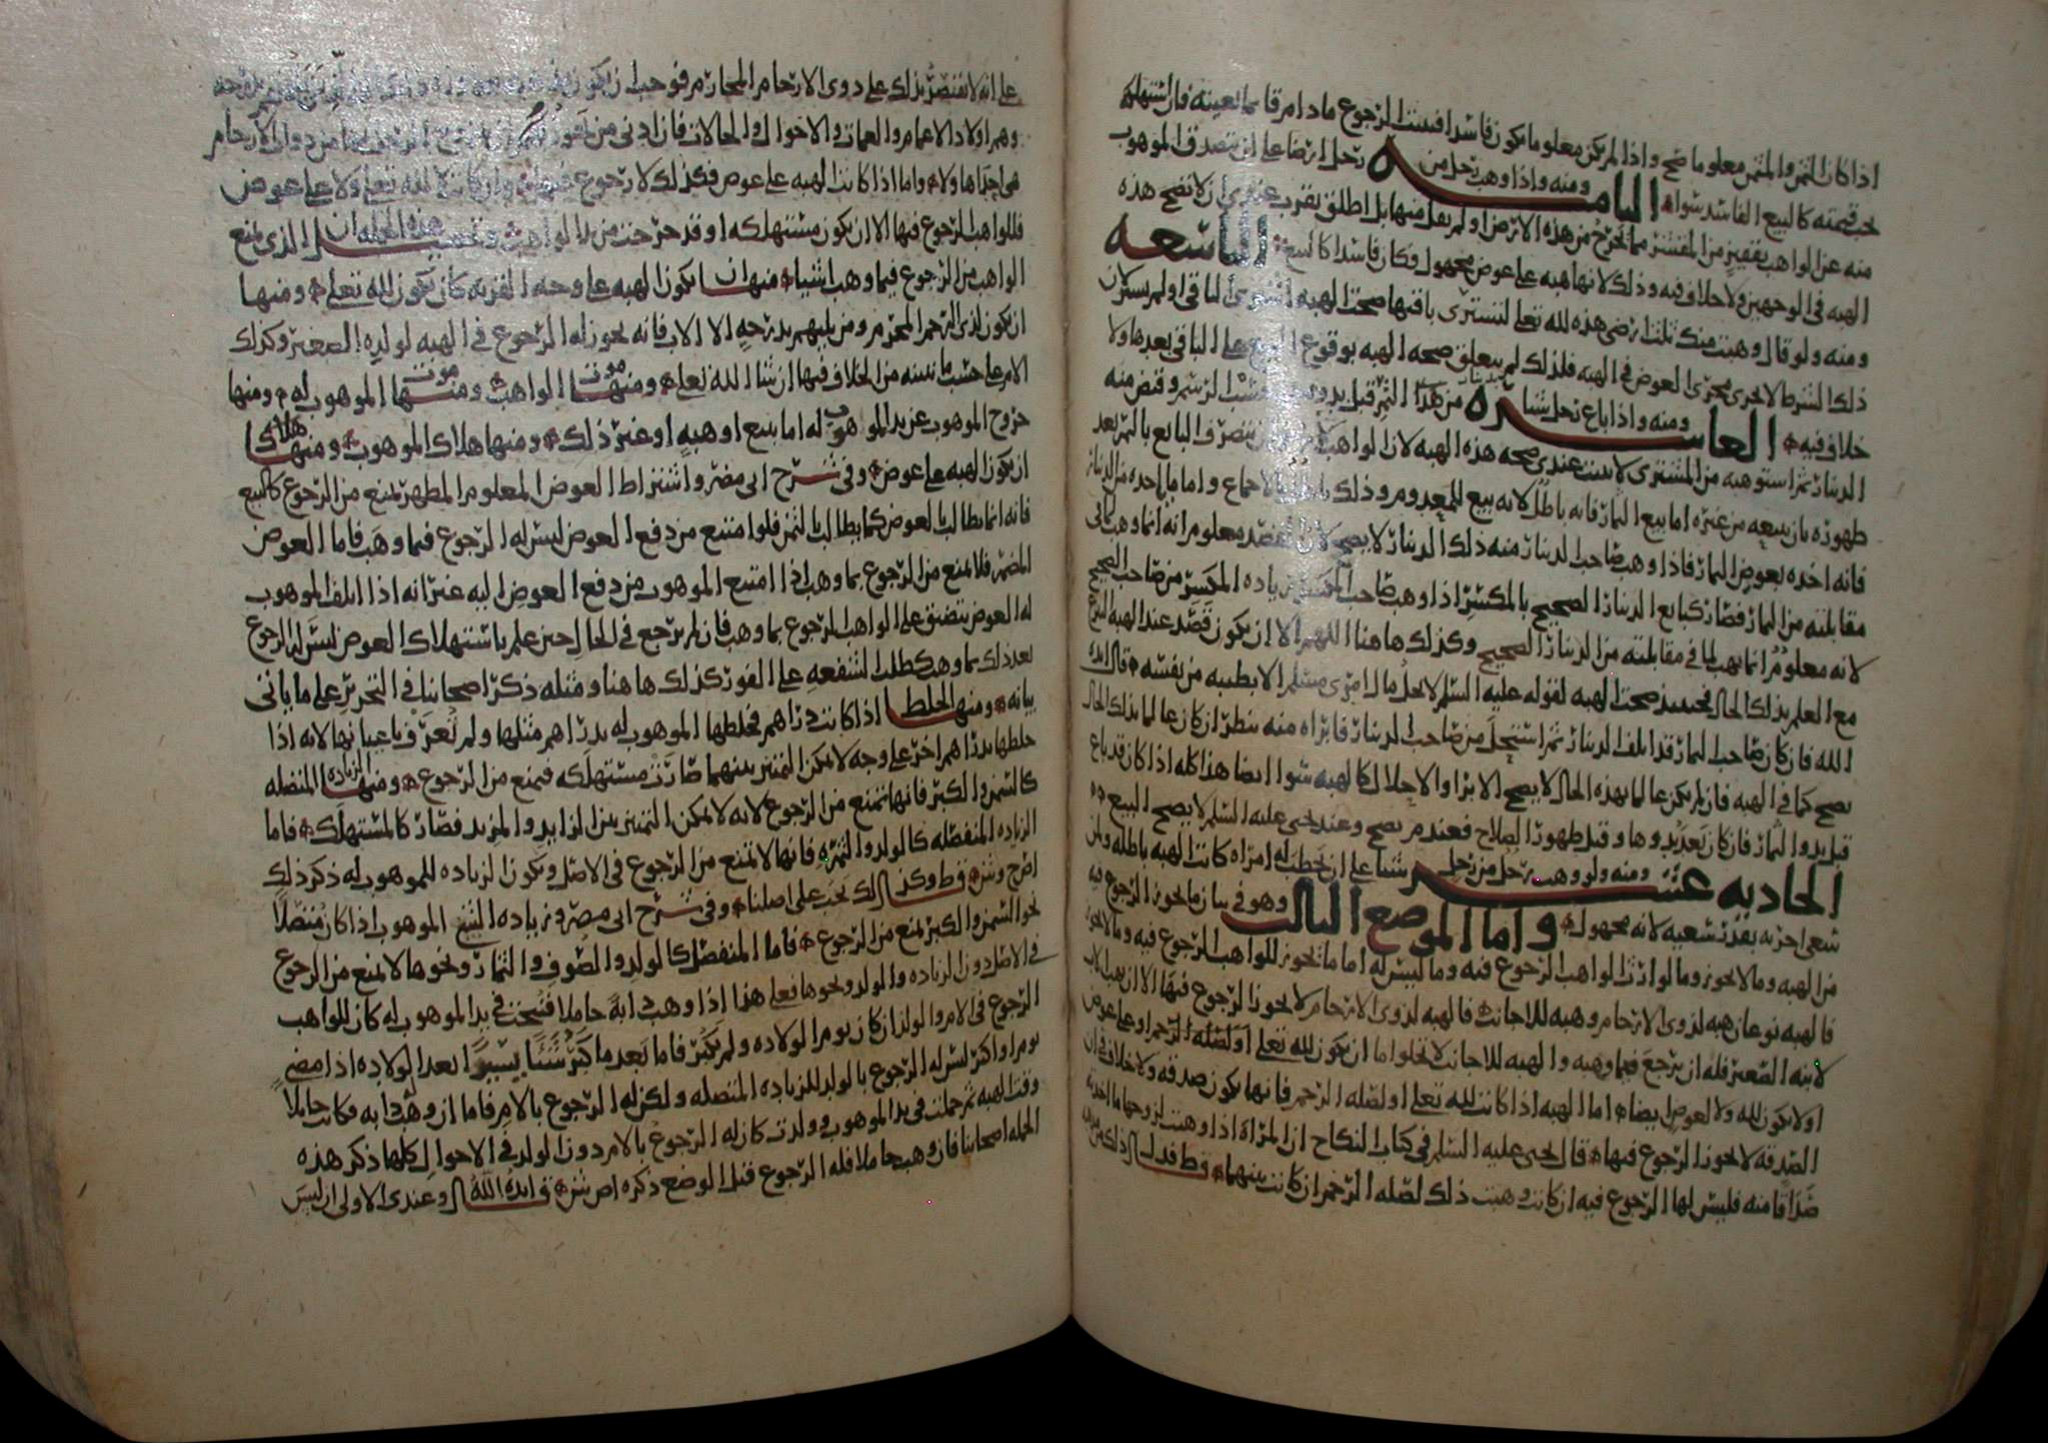 اذا كان الثمن والمثمن معلوما صح واذا لم يكن معلوما يكون فاسدا فيثبت الرجوع ما دام قائما بعينه فان استهلكه
يجب قيمته كالبيع الفاسد سواء الثامنه ومنه واذا وهب رجل من رجل ارضا على ان يتصدق الموهوب
منه عن الواهب بقفيز من المقشر مما يخرج من هذه الارض او لم يقل منها بل اطلق بقرب عندي ان لا تصح هذه
الهبه في الوجهين ولا خلاف فيه وذلك لانها هبه على عوض مجهول وكان فاسدا كالبيع التاسعه
ومنه ولو قال وهبت منك ثلث ارضي هذه لله تعلى لتشتري باقيها صحت الهبه اشترى الباقي او لم يشتر لان
ذلك الشرط لا يجري مجرى العوض في الهبه فلذلك لم يتعلق صحه الهبه بوقوع البيع على الباقي بعدها ولا
خلاف فيه العاشره ومنه واذا باع رجل من هذا الثمر قبل وقبض منه
الدينار ثم استوهبه من المشتري لا يثبت عندي صحه هذه الهبه لان الواهب يتصرف البايع بالثمر بعد
ظهوره بان يبيعه من غيره اما بيع الثمار فانه باطل لانه بيع المعدوم وذلك باطل بالاجماع واما ما ياخذه من الدينار
فانه اخذه بعوض الثمار فاذا وهب صاحب الدينار منه ذلك الدينار لا يصح لان القصد معلوم انه انما وهب لما في
مقابلته من الثمار فصار كبايع الدينار الصحيح بالمكسر اذا وهب صاحب المكسر زياده المكسر من صاحب الصحيح
لانه معلوم انما يهب لما في مقابلته من الدينار الصحيح وكذلك هاهنا اللهم الا ان يكون قصد عند الهبه التبرع
مع العلم بذلك الحال فحينئذ صحت الهبه لقوله عليه السلم لا يحل مال امرئ مسلم الا بطيبه من نفسه قال ايده
الله فان كان صاحب الثمار قد اتلف الدينار ثم استحل من صاحب الدينار فابراه منه ينظر ان كان عالما بذلك الحال
يصح كما في الهبه فان لم يكن عالما بهذه الحال لا يصح الابرا والاحلال كالهبه سوا ايضا هذا كله اذا كان قد باع
قبل بدو الثمار فان كان بعد بدوها وقبل ظهور الصلاح فعند م يصح وعند يحيى عليه السلم لا يصح البيع
الحاديه عشره ومنه ولو وهب رجل من رجل شيئا على ان يخطب له امراه كانت الهبه باطله ولمن
سعى اجره بقدر سعيه لانه مجهول واما الموضع الثالث وهو في بيان ما يجوز الرجوع فيه
من الهبه وما لا يجوز وما لوارث الواهب الرجوع فيه وما ليس له اما ما يجوز للواهب الرجوع فيه وما لا يجوز
فالهبه نوعان هبه لذوي الارحام وهبه للاجانب فالهبه لذوي الارحام لا يجوز الرجوع فيها الا ان يهب الاب
لابنه الصغير فله ان يرجع فيما وهبه والهبه للاجانب لا تخلوا اما ان يكون لله تعلى او لصله الرحم او على عوض
او لا يكون لله ولا لعوض ايضا اما الهبه اذا كانت لله تعلى او لصله الرحم فانها يكون صدقه ولا خلاف في ان
الصدقه لا يجوز الرجوع فيها قال يحيى عليه السلم في كتاب النكاح ان المراة اذا وهبت لزوجها ما اخذته
صداقا منه فليس لها الرجوع فيه ان كانت وهبت ذلك لصله الرحم ان كانت بينهما ط فدل ذلك
على انه لا يقتصر بذلك على ذوي الارحام المحارم فوجب ان يكون
وهم اولاد الاعمام والعمات والاخوال والخالات فان ادنى من من ذوي الارحام
هي اجداها ولاه واما اذا كانت الهبه على عوض فكذلك لا رجوع فيها وان كانت لا لله تعلى ولا على عوض
فللواهب الرجوع فيها الا ان يكون مستهلكه او قد خرجت من يد الواهب وتحصيل هذه الجمله ان الذي يمنع
الواهب من الرجوع فيما وهب اشيا منها ان يكون الهبه على وجه القربه كان يكون لله تعلى ومنها
ان يكون لذي الرحم المحرم ومن يليهم بدرجه الا الاب فانه يجوز له الرجوع في الهبه لولده الصغير وكذلك
الام على حسب ما نبينه من الخلاف فيها ان شا الله تعلى ومنها موت الواهب ومنها موت الموهوب له ومنها
خروج الموهوب عن يد الموهوب له اما ببيع او هبه او غير ذلك ومنها هلاك الموهوب ومنها
ان يكون الهبه على عوض وفي شرح ابي مضر واشتراط العوض المعلوم المظهر يمنع من الرجوع كالبيع
فانه انما يطالب بالعوض كما يطالب بالثمن فلو امتنع من دفع العوض ليس له الرجوع فيما وهب فاما العوض
المضمر فلا يمنع من الرجوع بما وهب اذا امتنع الموهوب من دفع العوض اليه غير انه اذا اتلف الموهوب
له العوض يتضيق على الواهب الرجوع بما وهب فان لم يرجع في الحال حين علم باستهلاك العوض ليس له الرجوع
بعد ذلك بما وهب كطلب الشفعه على الفور كذلك هاهنا ومثله ذكر اصحابنا في التحرير على ما ياتي
بيانه ومنها الخلط اذا كانت دراهم فخلطها الموهوب له بدراهم مثلها ولم تعرف باعيانها لانه اذا
خلطها بدراهم اخر على وجه لا يمكن التمييز بينهما صارت مستهلكه فيمنع من الرجوع ومنها الزياده المتصله
كالسمن والكبر فانها تمنع من الرجوع لانه لا يمكن التمييز بين الزايد والمزيد فصار كالمستهلك فاما
الزياده المنفصله كالولد والثمره فانها لا تمنع من الرجوع في الاصل ويكون الزياده للموهوب له ذكر ذلك
ط وكذلك يجب على اصلنا وفي شرح ابي مضر وزياده الشيء الموهوب اذا كان متصلا
نحو السمن والكبر يمنع من الرجوع فاما المنفصل كالولد والصوف والثمار ونحوها لا يمنع من الرجوع
في الاصل دون الزياده والولد ونحوها فعلى هذا اذا وهب دابة حاملا فنتجت في يد الموهوب له كان للواهب
الرجوع في الام والولد ان كان يوم الولاده ولم يكبر فاما بعد ما كبر شيئا يسيرا بعد الولاده اذا مضى
يوم او اكثر ليس له الرجوع بالولد للزياده المتصله ولكن له الرجوع بالام فاما ان وهب دابه فكانت حايلا
وقت الهبه ثم حملت في يد الموهوب وولدت كان له الرجوع بالام دون الولد في الاحوال كلها ذكر هذه
الجمله اصحابنا فان وهبها حاملا فله الرجوع قبل الوضع ذكره قال ايده الله وعندي الاولى ان ليس